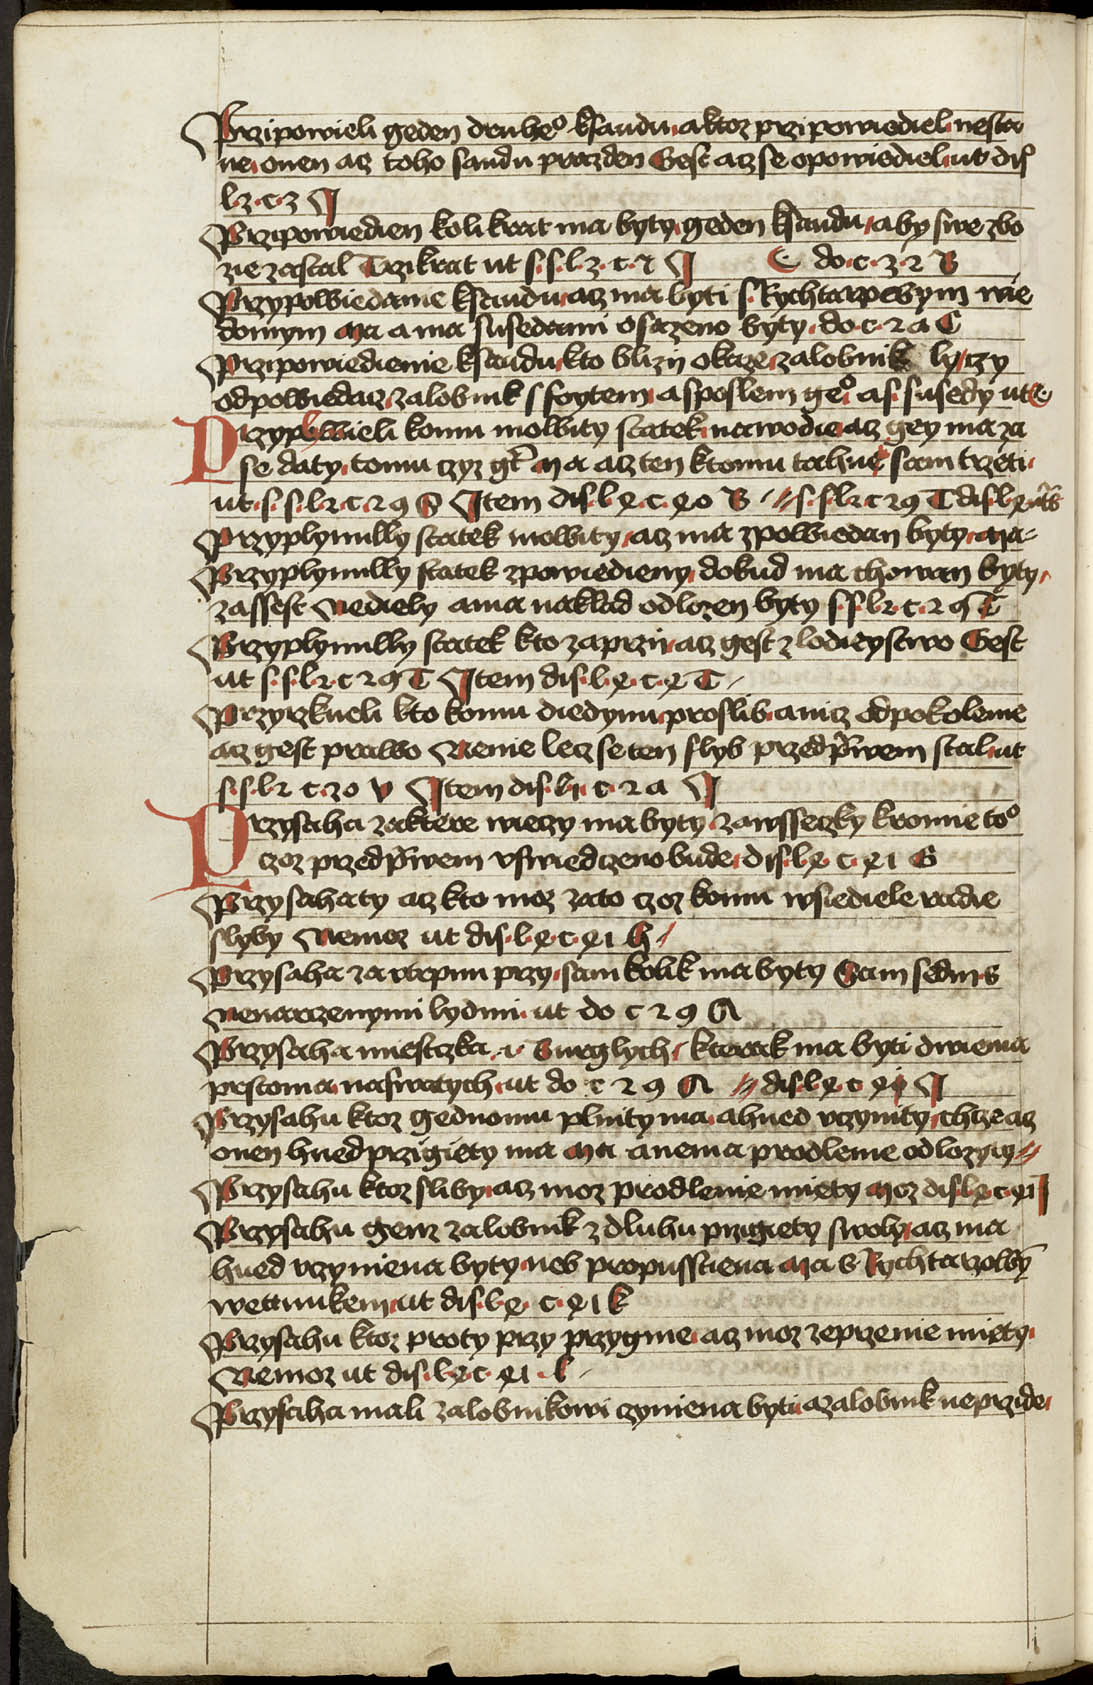 Przipowieli geden druheo ksaudu a ktoz przipowiediel nesta
ne onen acz toho saudu prazden Gest acz se opowiediel ut dis
l 2 c 3
Przipowiedien kolikrat ma byty geden ksaudu aby swe zbo
zie zastal Trzikrat ut s s l 2 c 7 C do c 2 2 B
Przypowiedanie ksaudu acz ma byti s Rychtarzowym wie
domym Ma a ma susedami osazeno byty do c 2 a C
Przipowiedienie ksaudu kto blizn okaze zalobnik ly czy
odpowiedacz zalobnik s foytem a s poslem geo a s susedy ut C
Przyplyweli komu mowity statek na wodie acz gey ma za
se daty tomu czyz gt Ma acz ten ktomu tahne sam trzeti
ut s s l 2 c 29 S Item dis l 4 c 40 B s s l 2 c 29 T dis l 4
Przyplynully statek mowity acz ma zpowiedan byty Ma
Przyplynully statek zpowiedieny dokud ma chowan byty
za ssest Nediely a ma naklad odlozen byty s s l 2 c 29 T
Przyplynully statek kto zaprzij acz gest zlodieystwo Gest
ut s s l 2 c 29 T Item dis l 4 c 4 T
Przyrzkneli kto komu diedynu proslib a nicz odpokolenie
acz gest prawo Nenie lecz se ten slyb przed prwem stal ut
s s l 2 c 30 V Item dis l c 2 a
Przysaha zaktere wieczy ma byty za wsseczky kromie too
czoz przed prwem uswiedczeno bude dis l 4 c 41 G
Przysahaty acz kto moz zato czoz komu w siedieles radie
slyby Nemoz ut dis l 4 c 41 H
Przysaha za wtepnu przy sam kolik ma byty Sam sedm s
nenarzenymi lydmi ut do c 29 A
Przysaha miesczka i Burglych kterak ma byti dwiema
prstoma na swatych ut do c 29 A dis l 4 c 41
Przysahu ktoz gednomu plnity ma a hned uczynity chtze acz
onen hned przigiety ma Ma a nema prodlenie odlozyty
Przysahu ktoz sliby acz moz prodlenie miety Moz dis l 4 c 41 I
Przysahu genz zalobnik z dluhu przigiety swoly acz ma
hned uczyniena byty neb propusstiena Ma s Rychtarzowym
wettunkem ut dis l 4 c 41 k
Przysahu ktoz proty przy przygme acz moz zeprzenie miety
Nemoz ut dis l 4 c 41 l
Przysaha mali zalobnikowi czyniena byti a zalobnik neprzide